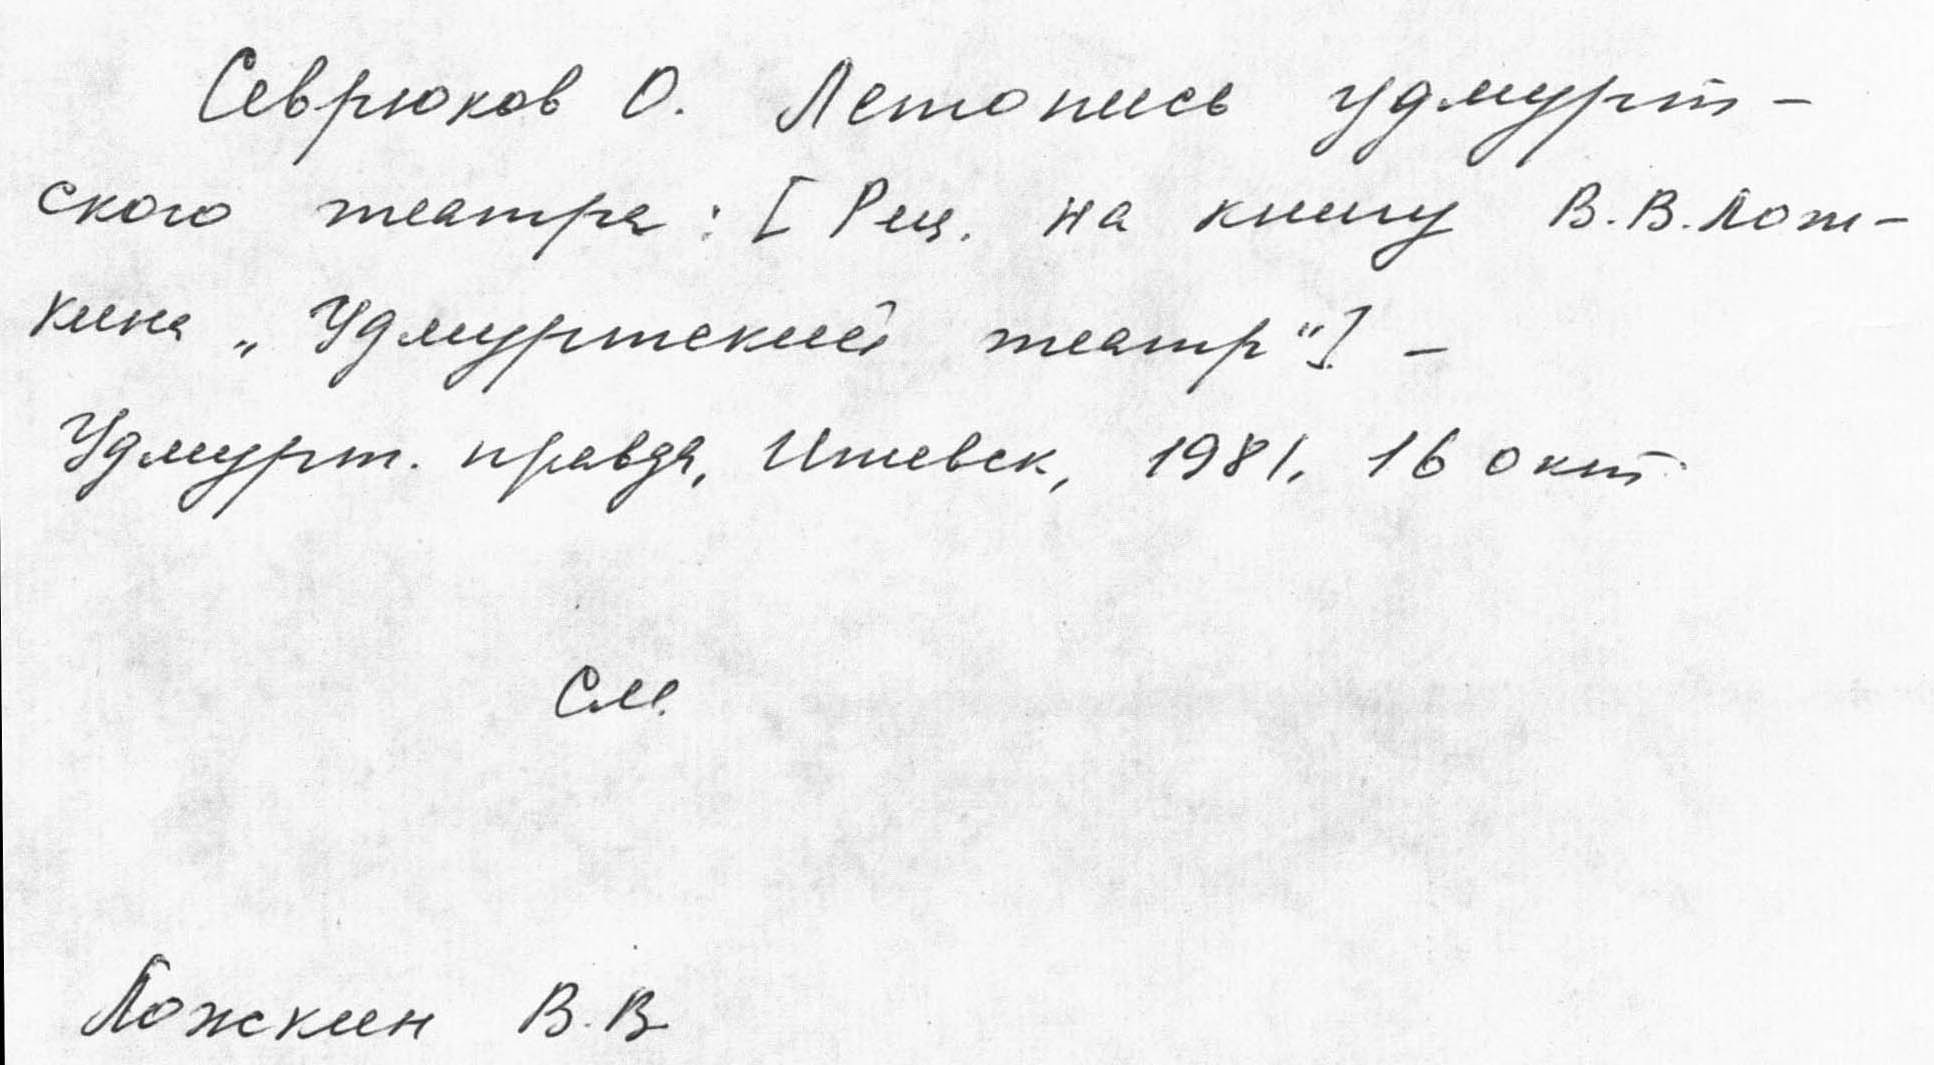 Севрюков О. Летопись удмурт-
ского театра: [Рец. на книгу В.В.Лож-
кина „Удмуртский театр"] –
Удмурт. правда, Ижевск, 1981. 16 окт.
См.
Ложкин В.В